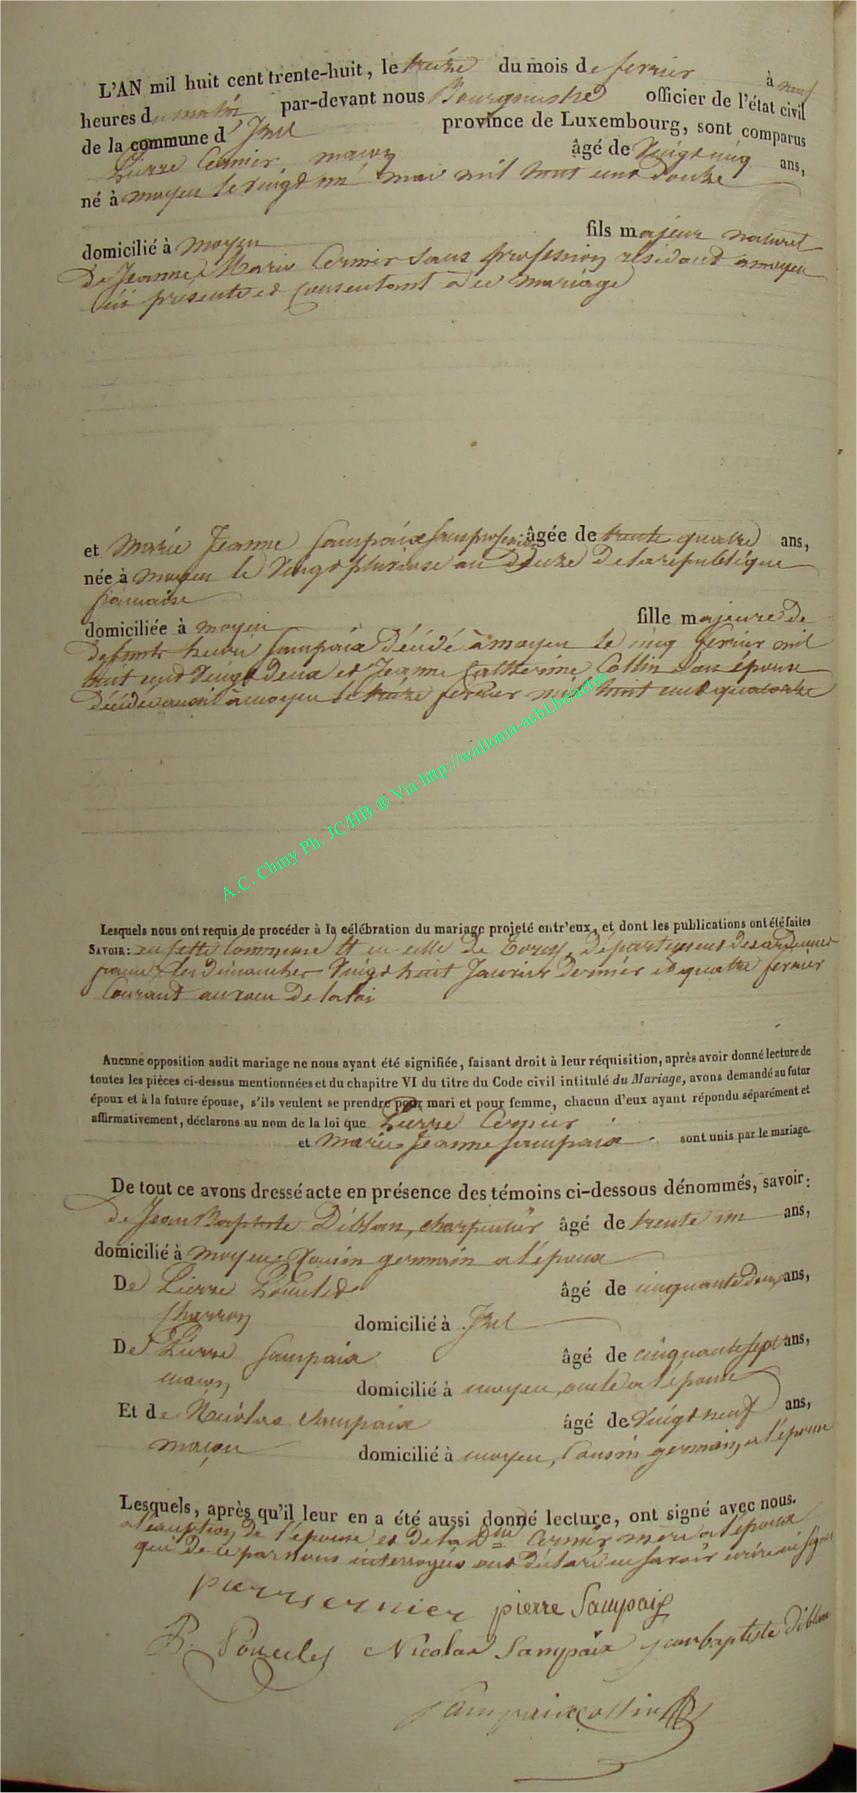 L'AN mil huit cent trente-huit, le treize du mois de fevrier à neuf
heures du matin par-devant nous Bourgmestre officier de l'état civil
de la commune d'Izel province de Luxembourg, sont comparus
Pierre Cernier maçon âgé de Vingt cinq ans,
né à moyen le vingt un mai mil huit cent douze
domicilié à moyen fils majeur naturel
de Jeanne Marie Cernier sans profession résidant a moyen
ici présente et consentant à ce mariage
et Marie Jeanne Sampaix sans profession âgée de trente quatre ans,
née à moyen le Vingt pluviose an Douze De la republique
francaise
domiciliée à moyen fille majeure de
defunts henri Sampaix Décédé à moyen le cinq fevrier mil
huit cent Vingt Deux et Jeanne Catherine Collin son épouse
décédée aussi à moyen le treize fevrier mil huit cent quatorze
A.C. Chiny Ph. JC.HB ® Via http://wallonia-asbl.be
Lesquels nous ont requis de procéder à la célébration du mariage projeté entr'eux, et dont les publications ont été faites
SAVOIR: en cette Commune et en celle de Torcy, département des ardennes
les Dimanches Vingt huit Janvier Dernier et quatre fevrier
Courant au vœu De la loi
Aucune opposition audit mariage ne nous ayant été signifiée, faisant droit à leur réquisition, après avoir donné lecture de
toutes les pièces ci-dessus mentionnées et du chapitre VI du titre du Code civil intitulé du Mariage, avons demandé au futur
époux et à la future épouse, s'ils veulent se prendre pour mari et pour femme, chacun d'eux ayant répondu séparément et
affirmativement, déclarons au nom de la loi que Pierre Cernier
et marie Jeanne Sampaix sont unis par le mariage.
De tout ce avons dressé acte en présence des témoins ci-dessous dénommés, savoir:
De Jean Baptiste Diblan, charpentier âgé de trente un ans,
domicilié à moyen Cousin germain a l'époux
De Pierre Poncelet âgé de cinquante Deux ans,
charron domicilié à Izel
De Pierre Sampaix âgé de cinquante sept ans,
maçon domicilié à moyen, oncle a l'épouse
Et de Nicolas Sampaix âgé de Vingt neuf ans,
maçon domicilié à moyen, Cousin germain, a l'épouse
Lesquels, après qu'il leur en a été aussi donné lecture, ont signé avec nous.
a l'exception de l'épouse et De la Dlle Cernier mère a l'époux
qui De ce par nous interrogées ont déclaré ne savoir écrire ni signer
pierre sernier pierre Sampaix
P. Poncelet Nicolas Sampaix jean baptiste diblan
Sampaix Collin